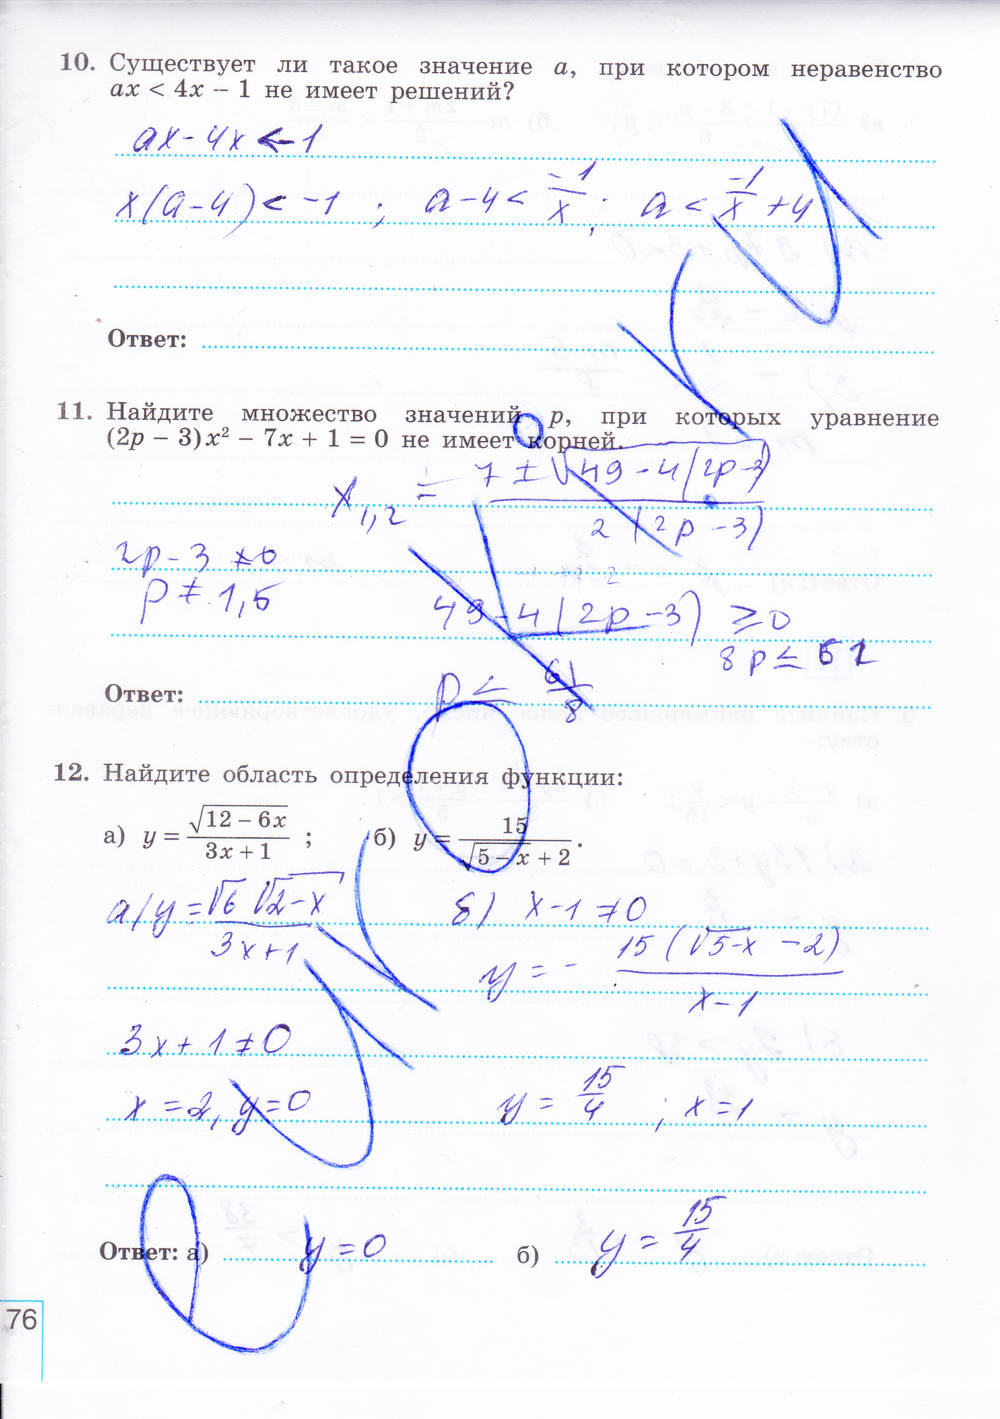 10. Существует ли такое значение a, при котором неравенство
ax < 4x − 1 не имеет решений?
ax - 4x < -1
x(a-4) < -1 ; a-4 < -1/x ; a < -1/x + 4
Ответ:
11. Найдите множество значений p, при которых уравнение
(2p − 3)x² − 7x + 1 = 0 не имеет корней.
x₁,₂ = (7 ± √49 - 4(2p-3)) / 2(2p-3)
2p-3 ≠ 0
p ≠ 1,5
49 - 4(2p-3) ≥ 0
8p ≤ 61
Ответ:
p ≤ 61/8
12. Найдите область определения функции:
а) y = √(12 − 6x) / (3x + 1) ; б) y = 15 / (√(5 − x) + 2).
а) y = √6 √2-x / 3x+1 б) x-1 ≠ 0
y = - 15(√5-x - 2) / x-1
3x + 1 ≠ 0
x = 2, y = 0 y = 15/4 ; x = 1
Ответ: а) y = 0 б) y = 15/4
76